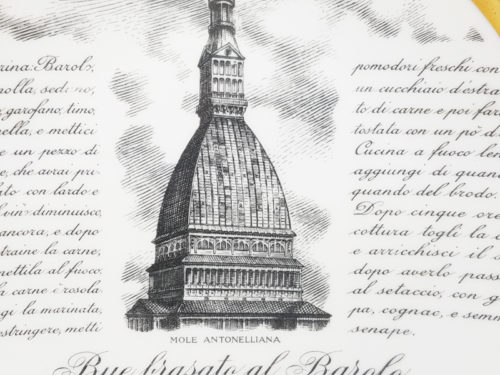 rina. Barolo,
nolla, sedano,
garofano, timo,
nella, e mettici
e un pezzo di
e, che avrai pri-
ato con lardo e
l vin diminuisce,
ancora, e dopo
traine la carne,
mettila al fuoco.
la carne è rosola
gi la marinata,
estringere, metti
MOLE ANTONELLIANA
pomodori freschi con
un cucchiaio d'estra
to di carne e poi far
tostata con un pò d
Cucina a fuoco len
aggiungi di quan
quando del brodo.
Dopo cinque ore
cottura togli la c
e arricchisci il s
dopo averlo pass
al setaccio, con g
pa, cognac, e sem
senape.
Bue brasato al Barolo